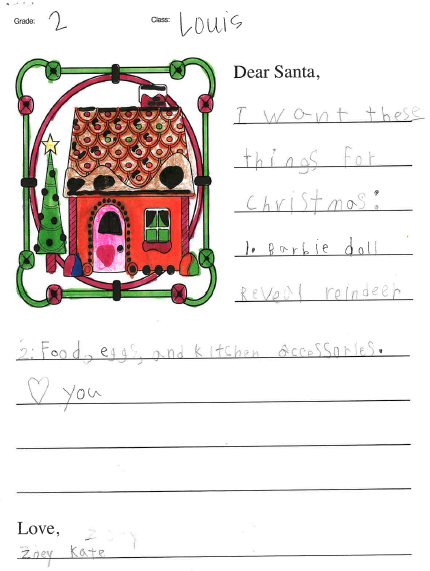 Grade: 2 Class: Louis
Dear Santa,
I want these
things for
christmas:
1. Barbie doll
Reveal reindeer
2: Food, eggs, and kitchen accessories.
♡ you
Love,
Zoey Kate